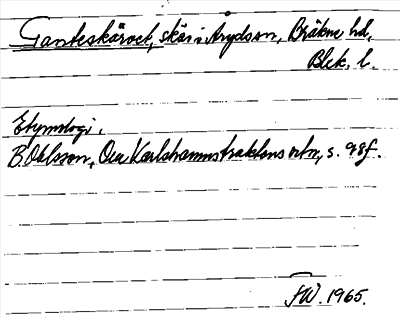 Tanteskäret, skär i Arydsön, Bräkne hd,
Blek. l.
Etymologi.
B. Ohlsson, Om Karlshamnstraktens ortn, s. 98f.
FW. 1965.